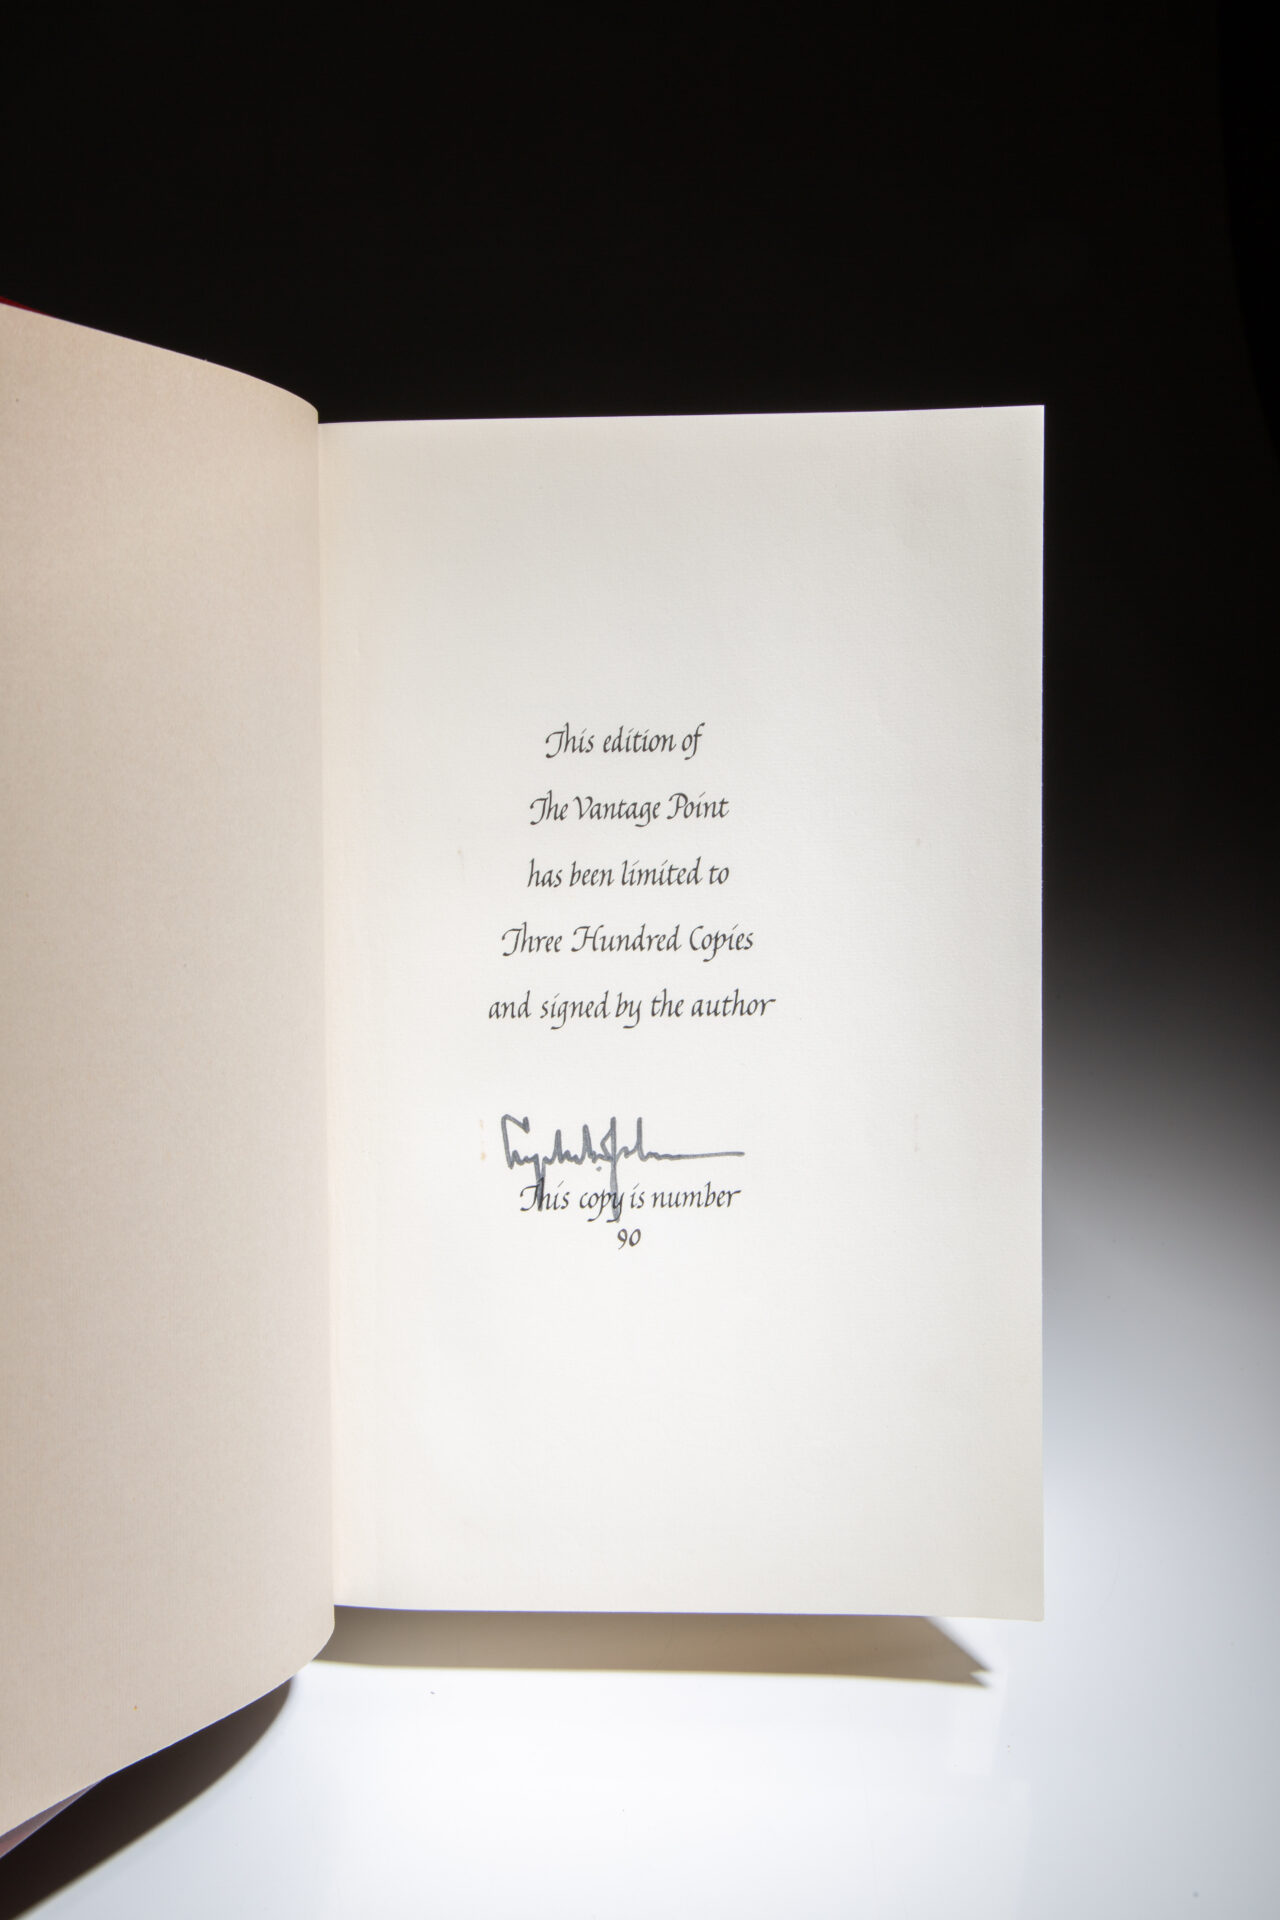 This edition of
The Vantage Point
has been limited to
Three Hundred Copies
and signed by the author
Lyndon B. Johnson
This copy is number
90